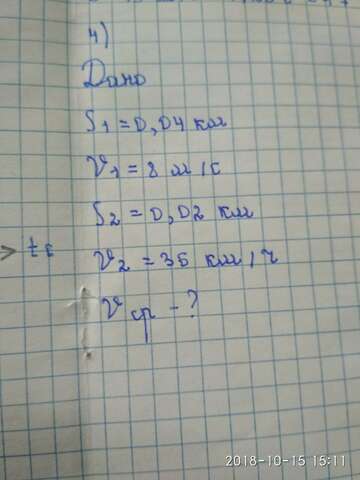 4)
Дано
S1 = 0,04 км
V1 = 8 м/с
S2 = 0,02 км
V2 = 36 км/ч
Vср - ?
2018-10-15 15:11